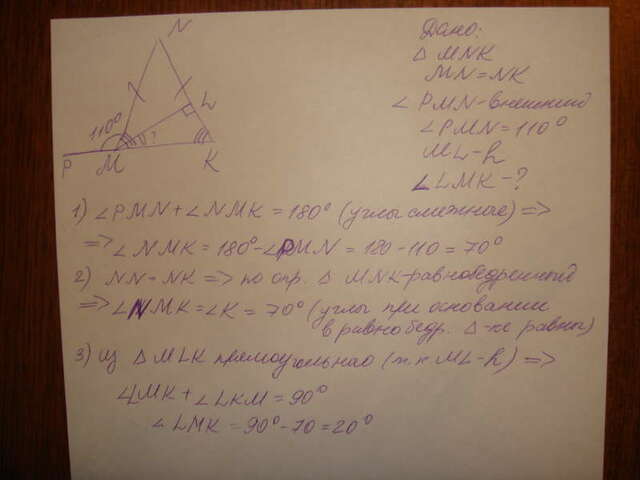 N
L
110°
?
P
M
K
Дано:
Δ MNK
MN = NK
∠ PMN - внешний
∠ PMN = 110°
ML - h
∠ LMK - ?
1) ∠PMN + ∠NMK = 180° (углы смежные) =>
=> ∠ NMK = 180° - ∠PMN = 180 - 110 = 70°
2) NN = NK => по опр. Δ MNK-равнобедренный
=> ∠NMK = ∠K = 70° (углы при основании
в равнобедр. Δ-ке равны)
3) Из Δ MLK прямоугольного (т.к ML - h) =>
∠LMK + ∠LKM = 90°
∠ LMK = 90° - 70 = 20°